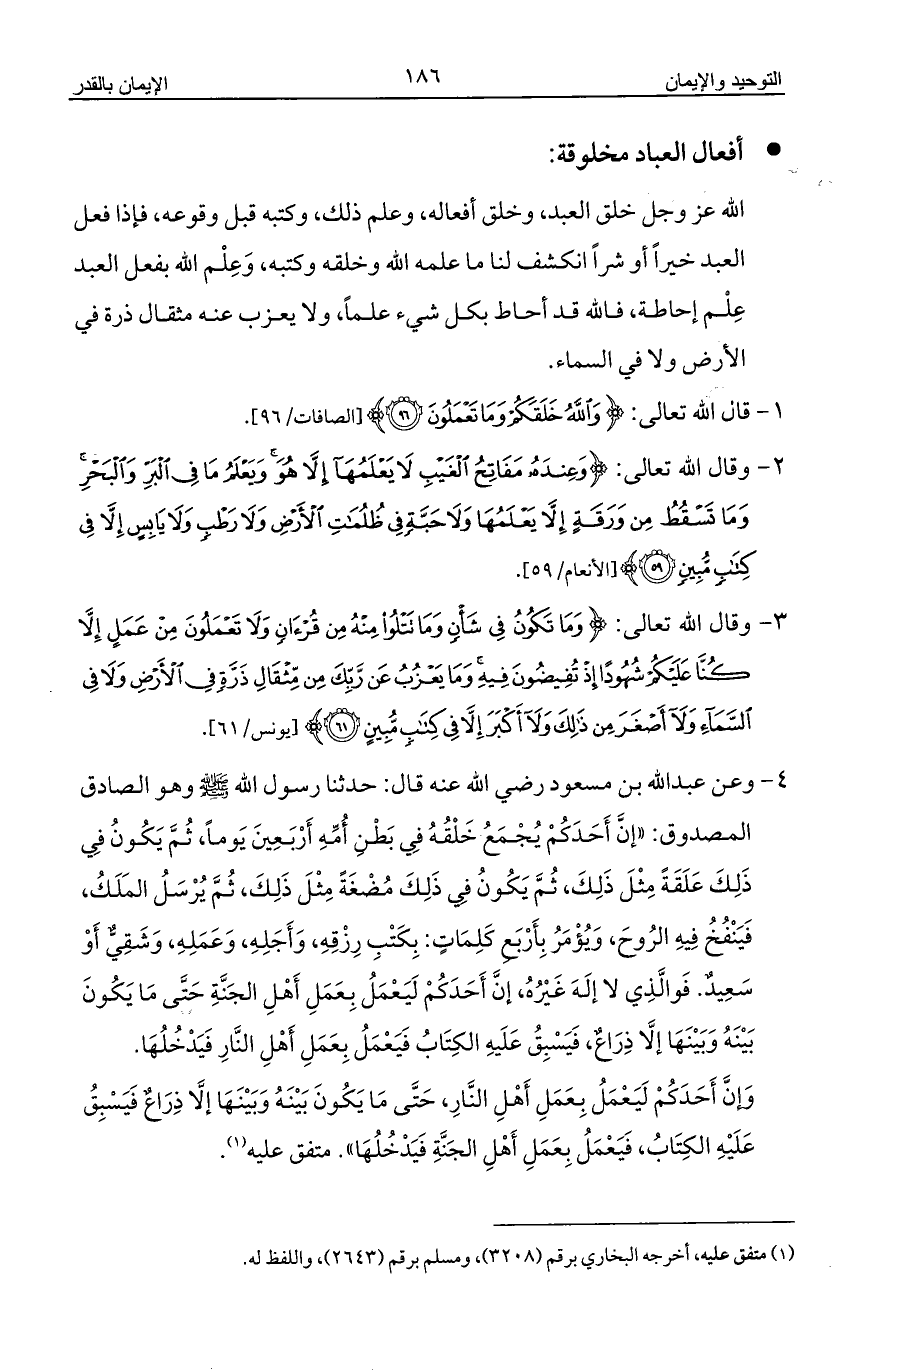 التوحيد والإيمان ١٨٦ الإيمان بالقدر
● أفعال العباد مخلوقة:
الله عز وجل خلق العبد، وخلق أفعاله، وعلم ذلك، وكتبه قبل وقوعه، فإذا فعل
العبد خيراً أو شراً انكشف لنا ما علمه الله وخلقه وكتبه، وَعِلْم الله بفعل العبد
عِلْم إحاطة، فالله قد أحاط بكل شيء علماً، ولا يعزب عنه مثقال ذرة في
الأرض ولا في السماء.
١- قال الله تعالى: ﴿ وَٱللَّهُ خَلَقَكُمْ وَمَا تَعْمَلُونَ ٩٦﴾ [الصافات/ ٩٦].
٢- وقال الله تعالى: ﴿وَعِندَهُۥ مَفَاتِحُ ٱلْغَيْبِ لَا يَعْلَمُهَآ إِلَّا هُوَ ۚ وَيَعْلَمُ مَا فِى ٱلْبَرِّ وَٱلْبَحْرِ ۚ
وَمَا تَسْقُطُ مِن وَرَقَةٍ إِلَّا يَعْلَمُهَا وَلَا حَبَّةٍ فِى ظُلُمَٰتِ ٱلْأَرْضِ وَلَا رَطْبٍ وَلَا يَابِسٍ إِلَّا فِى
كِتَٰبٍ مُّبِينٍ ٥٩﴾ [الأنعام/ ٥٩].
٣- وقال الله تعالى: ﴿ وَمَا تَكُونُ فِى شَأْنٍ وَمَا تَتْلُوا۟ مِنْهُ مِن قُرْءَانٍ وَلَا تَعْمَلُونَ مِنْ عَمَلٍ إِلَّا
كُنَّا عَلَيْكُمْ شُهُودًا إِذْ تُفِيضُونَ فِيهِ ۚ وَمَا يَعْزُبُ عَن رَّبِّكَ مِن مِّثْقَالِ ذَرَّةٍ فِى ٱلْأَرْضِ وَلَا فِى
ٱلسَّمَآءِ وَلَآ أَصْغَرَ مِن ذَٰلِكَ وَلَآ أَكْبَرَ إِلَّا فِى كِتَٰبٍ مُّبِينٍ ٦١﴾ [يونس/ ٦١].
٤- وعن عبدالله بن مسعود رضي الله عنه قال: حدثنا رسول الله ﷺ وهو الصادق
المصدوق: «إِنَّ أَحَدَكُمْ يُجْمَعُ خَلْقُهُ فِي بَطْنِ أُمِّهِ أَرْبَعِينَ يَوماً، ثُمَّ يَكُونُ فِي
ذَلِكَ عَلَقَةً مِثْلَ ذَلِكَ، ثُمَّ يَكُونُ فِي ذَلِكَ مُضْغَةً مِثْلَ ذَلِكَ، ثُمَّ يُرْسَلُ المَلَكُ،
فَيَنْفُخُ فِيهِ الرُوحَ، وَيُؤْمَرُ بِأَرْبَعِ كَلِمَاتٍ: بِكَتْبِ رِزْقِهِ، وَأَجَلِهِ، وَعَمَلِهِ، وَشَقِيٌّ أَوْ
سَعِيدٌ. فَوالَّذِي لا إلَهَ غَيْرُهُ، إنَّ أَحَدَكُمْ لَيَعْمَلُ بِعَمَلِ أَهْلِ الجَنَّةِ حَتَّى مَا يَكُونَ
بَيْنَهُ وَبَيْنَهَا إلَّا ذِرَاعٌ، فَيَسْبِقُ عَلَيهِ الكِتَابُ فَيَعْمَلُ بِعَمَلِ أَهْلِ النَّارِ فَيَدْخُلُهَا.
وَإِنَّ أَحَدَكُمْ لَيَعْمَلُ بِعَمَلِ أَهْلِ النَّارِ، حَتَّى مَا يَكُونَ بَيْنَهُ وَبَيْنَهَا إلَّا ذِرَاعٌ فَيَسْبِقُ
عَلَيْهِ الكِتَابُ، فَيَعْمَلُ بِعَمَلِ أَهْلِ الجَنَّةِ فَيَدْخُلُهَا». متفق عليه(١).
(١) متفق عليه، أخرجه البخاري برقم (٣٢٠٨)، ومسلم برقم (٢٦٤٣)، واللفظ له.